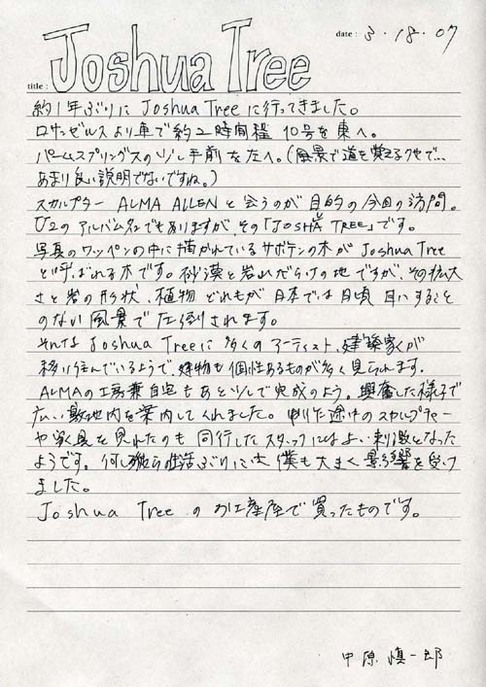 Joshua Tree
date : 3・18・07
title :
約1年ぶりに Joshua Tree に行ってきました。
ロサンゼルスより車で約2時間程 10号を東へ。
パームスプリングスの少し手前を左へ。(風景で道を覚えるクセで…
あまり良い説明でないですね。)
スカルプター ALMA ALLEN と会うのが目的の今回の訪問。
U2のアルバム名でもありますが、その「JOSHUA TREE」です。
写真のワッペンの中に描かれているサボテンの木が Joshua Tree
と呼ばれる木です。砂漠と岩だらけの地ですが、その拡大
さと岩の形状、植物 どれもが日本では日頃 耳にすること
のない風景で圧倒されます。
そんな Joshua Tree に多くのアーティスト、建築家が
移り住んでいるようで、建物も個性あるものが多く見られます。
ALMAの工房兼自宅もあと少しで完成のよう。興奮した様子で
広い敷地内を案内してくれました。制作途中のスカルプチャー
や家具を見れたのも 同行したスタッフにはよい刺激となった
ようです。何しろ彼らの生活ぶりには 僕も大きく影響を受け
ました。
Joshua Tree のお土産屋で買ったものです。
中原慎一郎